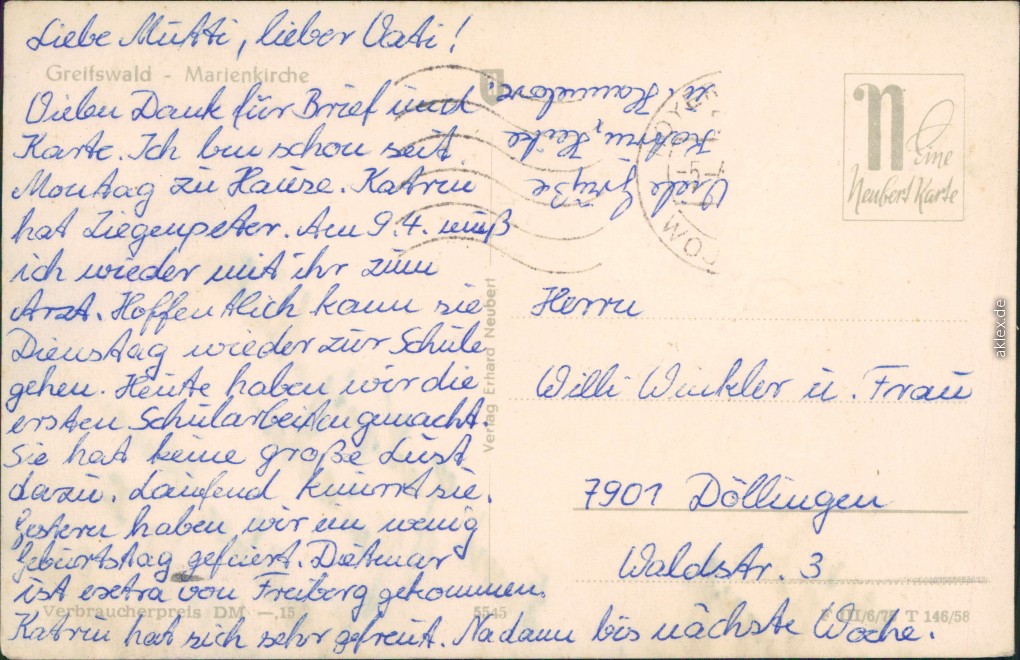 Liebe Mutti, lieber Vati!
Greifswald - Marienkirche
Vielen Dank für Brief und
Karte. Ich bin schon seit
Montag zu Hause. Katrin
hat Ziegenpeter. Am 9.4. muß
ich wieder mit ihr zum
Arzt. Hoffentlich kann sie
Dienstag wieder zur Schule
gehen. Heute haben wir die
ersten Schularbeiten gemacht.
Sie hat keine große Lust
dazu. Laufend knurrt sie.
Gestern haben wir ein wenig
Geburtstag gefeiert. Dietmar
ist extra von Freiberg gekommen.
Katrin hat sich sehr gefreut. Na dann bis nächste Woche.
Viele Grüße
Katrin, Heike
Hannelore.
Verbraucherpreis DM —,15
5545
III/6/75 T 146/58
Verlag Erhard Neubert
Eine
Neubert Karte
Herrn
Willi Winkler u. Frau
7901 Döllingen
Waldstr. 3
aklex.de